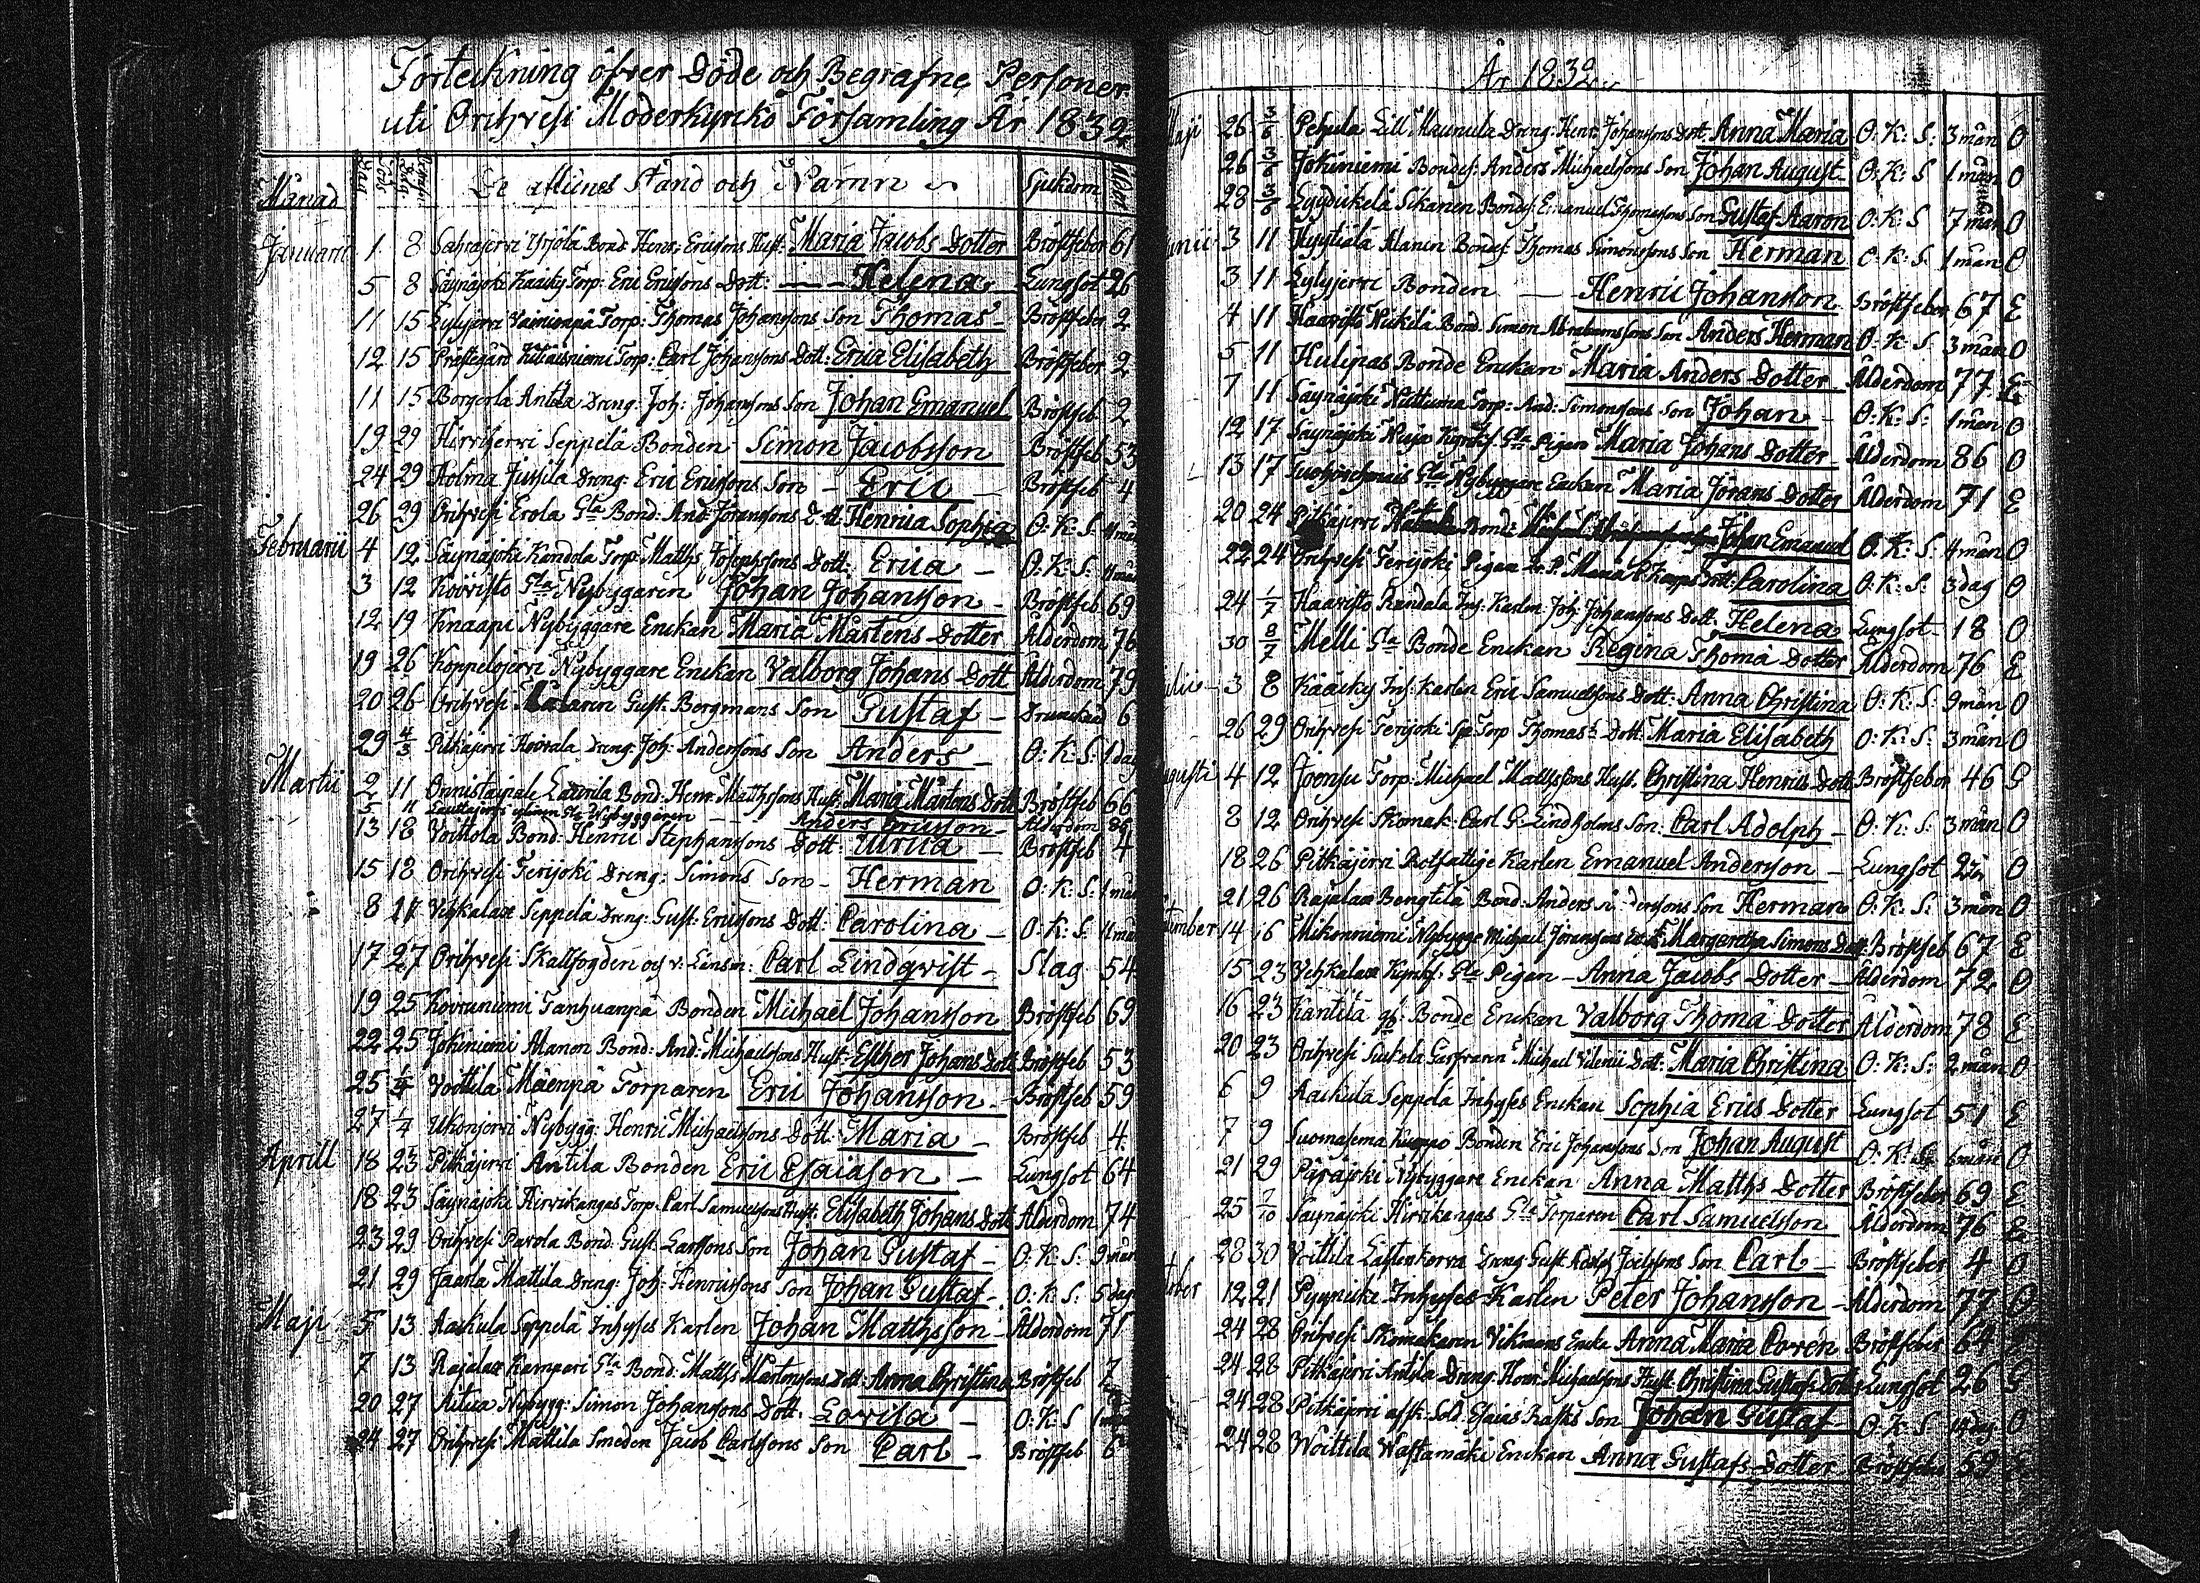 Förteckning öfver Döde och Begrafne Personer
uti Orihvesi Moderkyrko Församling År 1832
Månad Dag Stånd och Namn Sjukdom Ålder
Januarii 1 8 Bond. Henr. Ericsons Hust. Maria Jacobs Dotter Bröstfeber 61
5 8 Säynäjoki Kaacky Torp: Eric Ericsons Dott: Helena Lungsot 26
11 15 Torp: Thomas Johanssons Son Thomas Bröstfeber 2
12 15 Prästegård Torp: Carl Johanssons Dott: Erica Elisabeth Bröstfeber 2
11 15 Antila Dreng: Joh: Johanssons Son Johan Emanuel Bröstfeb 2
19 29 Hirvijervi Seppelä Bonden Simon Jacobsson Bröstfeb 53
24 29 Holma Jussila Dreng: Eric Ericssons Son Eric Bröstfeb 4
26 29 Orihvesi Erola Gla Bond: And: Joranssons Dott Henrica Sophia O: K: S:
Februarii 4 12 Säynäjoki Kandola Torp: Matths Josephssons Dott: Erica O: K: S:
3 12 Koivisto Gla Nybyggaren Johan Johansson Bröstfeb 69
12 19 Knaapi Nybyggare Enckan Maria Mårtens Dotter Ålderdom 76
19 26 Koppelojervi Nybyggare Enckan Valborg Johans Dott Ålderdom 79
20 26 Orihvesi Gust: Bergmans Son Gustaf 6
29 4/3 Pitkäjervi Hoivala Dreng: Joh: Anderssons Son Anders O: K: S: 1 dag
Martii 2 11 Onnistaipale Laurila Bond: Henr: Matthssons Hust: Maria Mårtens Dott Bröstfeb 66
5 11 Gla Nybyggaren Anders Ericsson Ålderdom
13 18 Voittola Bond: Henric Stephanssons Dott: Ulrica Bröstfeb 4
15 18 Orihvesi Terijoki Dreng: Simons Son Herman O: K: S: 1 mån
8 11 Vehkalax Seppelä Dreng: Gust: Ericssons Dott: Carolina O: K: S:
17 27 Orihvesi Skallfogden och v: Länsm: Carl Lindqvist Slag 54
19 25 Kovruniemi Tanhuanpä Bonden Michael Johansson Bröstfeb 69
22 25 Jokiniemi Alanen Bond: And: Michaelssons Hust: Esther Johans Dott Bröstfeb 53
25 1/4 Voittila Mäenpä Torparen Eric Johansson Bröstfeb 59
27 1/4 Ukonjervi Nybygg: Henric Michaelssons Dott: Maria Bröstfeb 4
Aprill 18 23 Pitkäjervi Antila Bonden Eric Esaiasson Lungsot 64
18 23 Säynäjoki Hirvikangas Torp: Carl Samuelssons Hust: Elisabeth Johans Dott Ålderdom 74
23 29 Orihvesi Pavola Bond: Gust: Larssons Son Johan Gustaf O: K: S: 9 mån
21 29 Jaarla Mattila Dreng: Joh: Henricssons Son Johan Gustaf O: K: S: 5 dag
Maji 5 13 Aaskula Seppelä Inhyses Karlen Johan Matthsson Ålderdom 71
7 13 Rajalax Kamperi Gla Bond: Matths Mårtenssons Dott: Anna Christina Bröstfeb 7
20 27 Nybygg: Simon Johanssons Dott: Lovisa O: K: S
24 27 Orihvesi Mattila Smeden Jacob Carlssons Son Carl Bröstfeb 6
År 1832
Maji 26 3/6 Pehula Lill Maunula Dreng: Henr: Johanssons Dott: Anna Maria O: K: S: 3 mån O
26 3/6 Jokiniemi Bondes: Anders Michaelssons Son Johan August O: K: S 1 mån O
28 3/6 Sikanen Bonds: Emanuel Thomassons Son Gustaf Aaron O: K: S 7 mån O
Junii 3 11 Hyytiälä Alanen Bondes: Thomas Simonssons Son Herman O: K: S. 1 mån O
3 11 Lylyjervi Bonden Henric Johansson Bröstfeber 67 E
4 11 Haavisto Nickilä Bond: Simon Abrahamssons Son Anders Herman O: K: S: 3 mån O
5 11 Bonde Enckan Maria Anders Dotter Ålderdom 77 E
7 11 Säynäjoki Torp: And: Simonssons Son Johan O: K: S: 1 mån O
12 17 Säynäjoki Gla Pigan Maria Johans Dotter Ålderdom 86 O
13 17 Gla Nybyggare Enckan Maria Jörans Dotter Ålderdom 71 E
20 24 Pitkäjervi Bond: Johan Emanuel O: K: S: 4 mån O
22 24 Orihvesi Terijoki Pigan Maria Dott: Carolina O: K: S: 3 dag O
24 1/7 Haavisto Randala Inh: Karlen Joh: Johanssons Dott: Helena Lungsot 18 O
30 8/7 Melli Gla Bonde Enckan Regina Thoma Dotter Ålderdom 76 E
Julii 3 8 Kääcky Inh: Karlen Eric Samuelssons Dott: Anna Christina O: K: S: 9 mån O
26 29 Orihvesi Terijoki Torp Thomas Dott: Maria Elisabeth O: K: S: 3 mån O
Augusti 4 12 Joensu Torp: Michael Matthssons Hust. Christina Henrics Dott Bröstfeber 46 G
8 12 Orihvesi Skomak: Carl G: Lindholms Son: Carl Adolph O: K: S: 3 mån O
18 26 Pitkäjervi Rotfattige Karlen Emanuel Andersson Lungsot O
21 26 Rajalax Bengtilä Bond: Anders Son Herman O: K: S: 3 mån O
14 16 Mikonniemi Nybygg: Michael Joranssons Margaretha Simons Dott Bröstfeb 67 E
15 23 Vehkalax Gla Pigan Anna Jacobs Dotter Ålderdom 72 O
16 23 Kantila Bonde Enckan Valborg Thoma Dotter Ålderdom 78 E
20 23 Orihvesi Suckola Garfvaren Michael Vilenii Dott: Maria Christina O: K: S: 2 mån O
6 9 Aaskula Seppelä Inhyses Enckan Sophia Erics Dotter Lungsot 51 E
7 9 Suomasema Bonden Eric Johanssons Son Johan August O: K: S: O
21 29 Päräjoki Nybyggare Enckan Anna Matths Dotter Bröstfeber 69 E
25 7/10 Säynäjoki Hirvikangas Gla Torparen Carl Samuelsson Ålderdom 76 E
28 30 Voittila Dreng Gust: Adolf Joelssons Son Carl Bröstfeber 4 O
12 21 Inhyses Karlen Peter Johansson Ålderdom 77 O
24 28 Orihvesi Skomakaren Vikmans Encka Anna Maria Bröstfeber 64
24 28 Pitkäjervi Antila Dreng: Henr: Michaelssons Hust: Christina Gustafs Dotter Lungsot 26 G
24 28 Pitkäjervi afsk: Sold: Esaias Rasks Son Johan Gustaf O: K: S O
24 28 Voittila Enckan Anna Gustafs Dotter 59